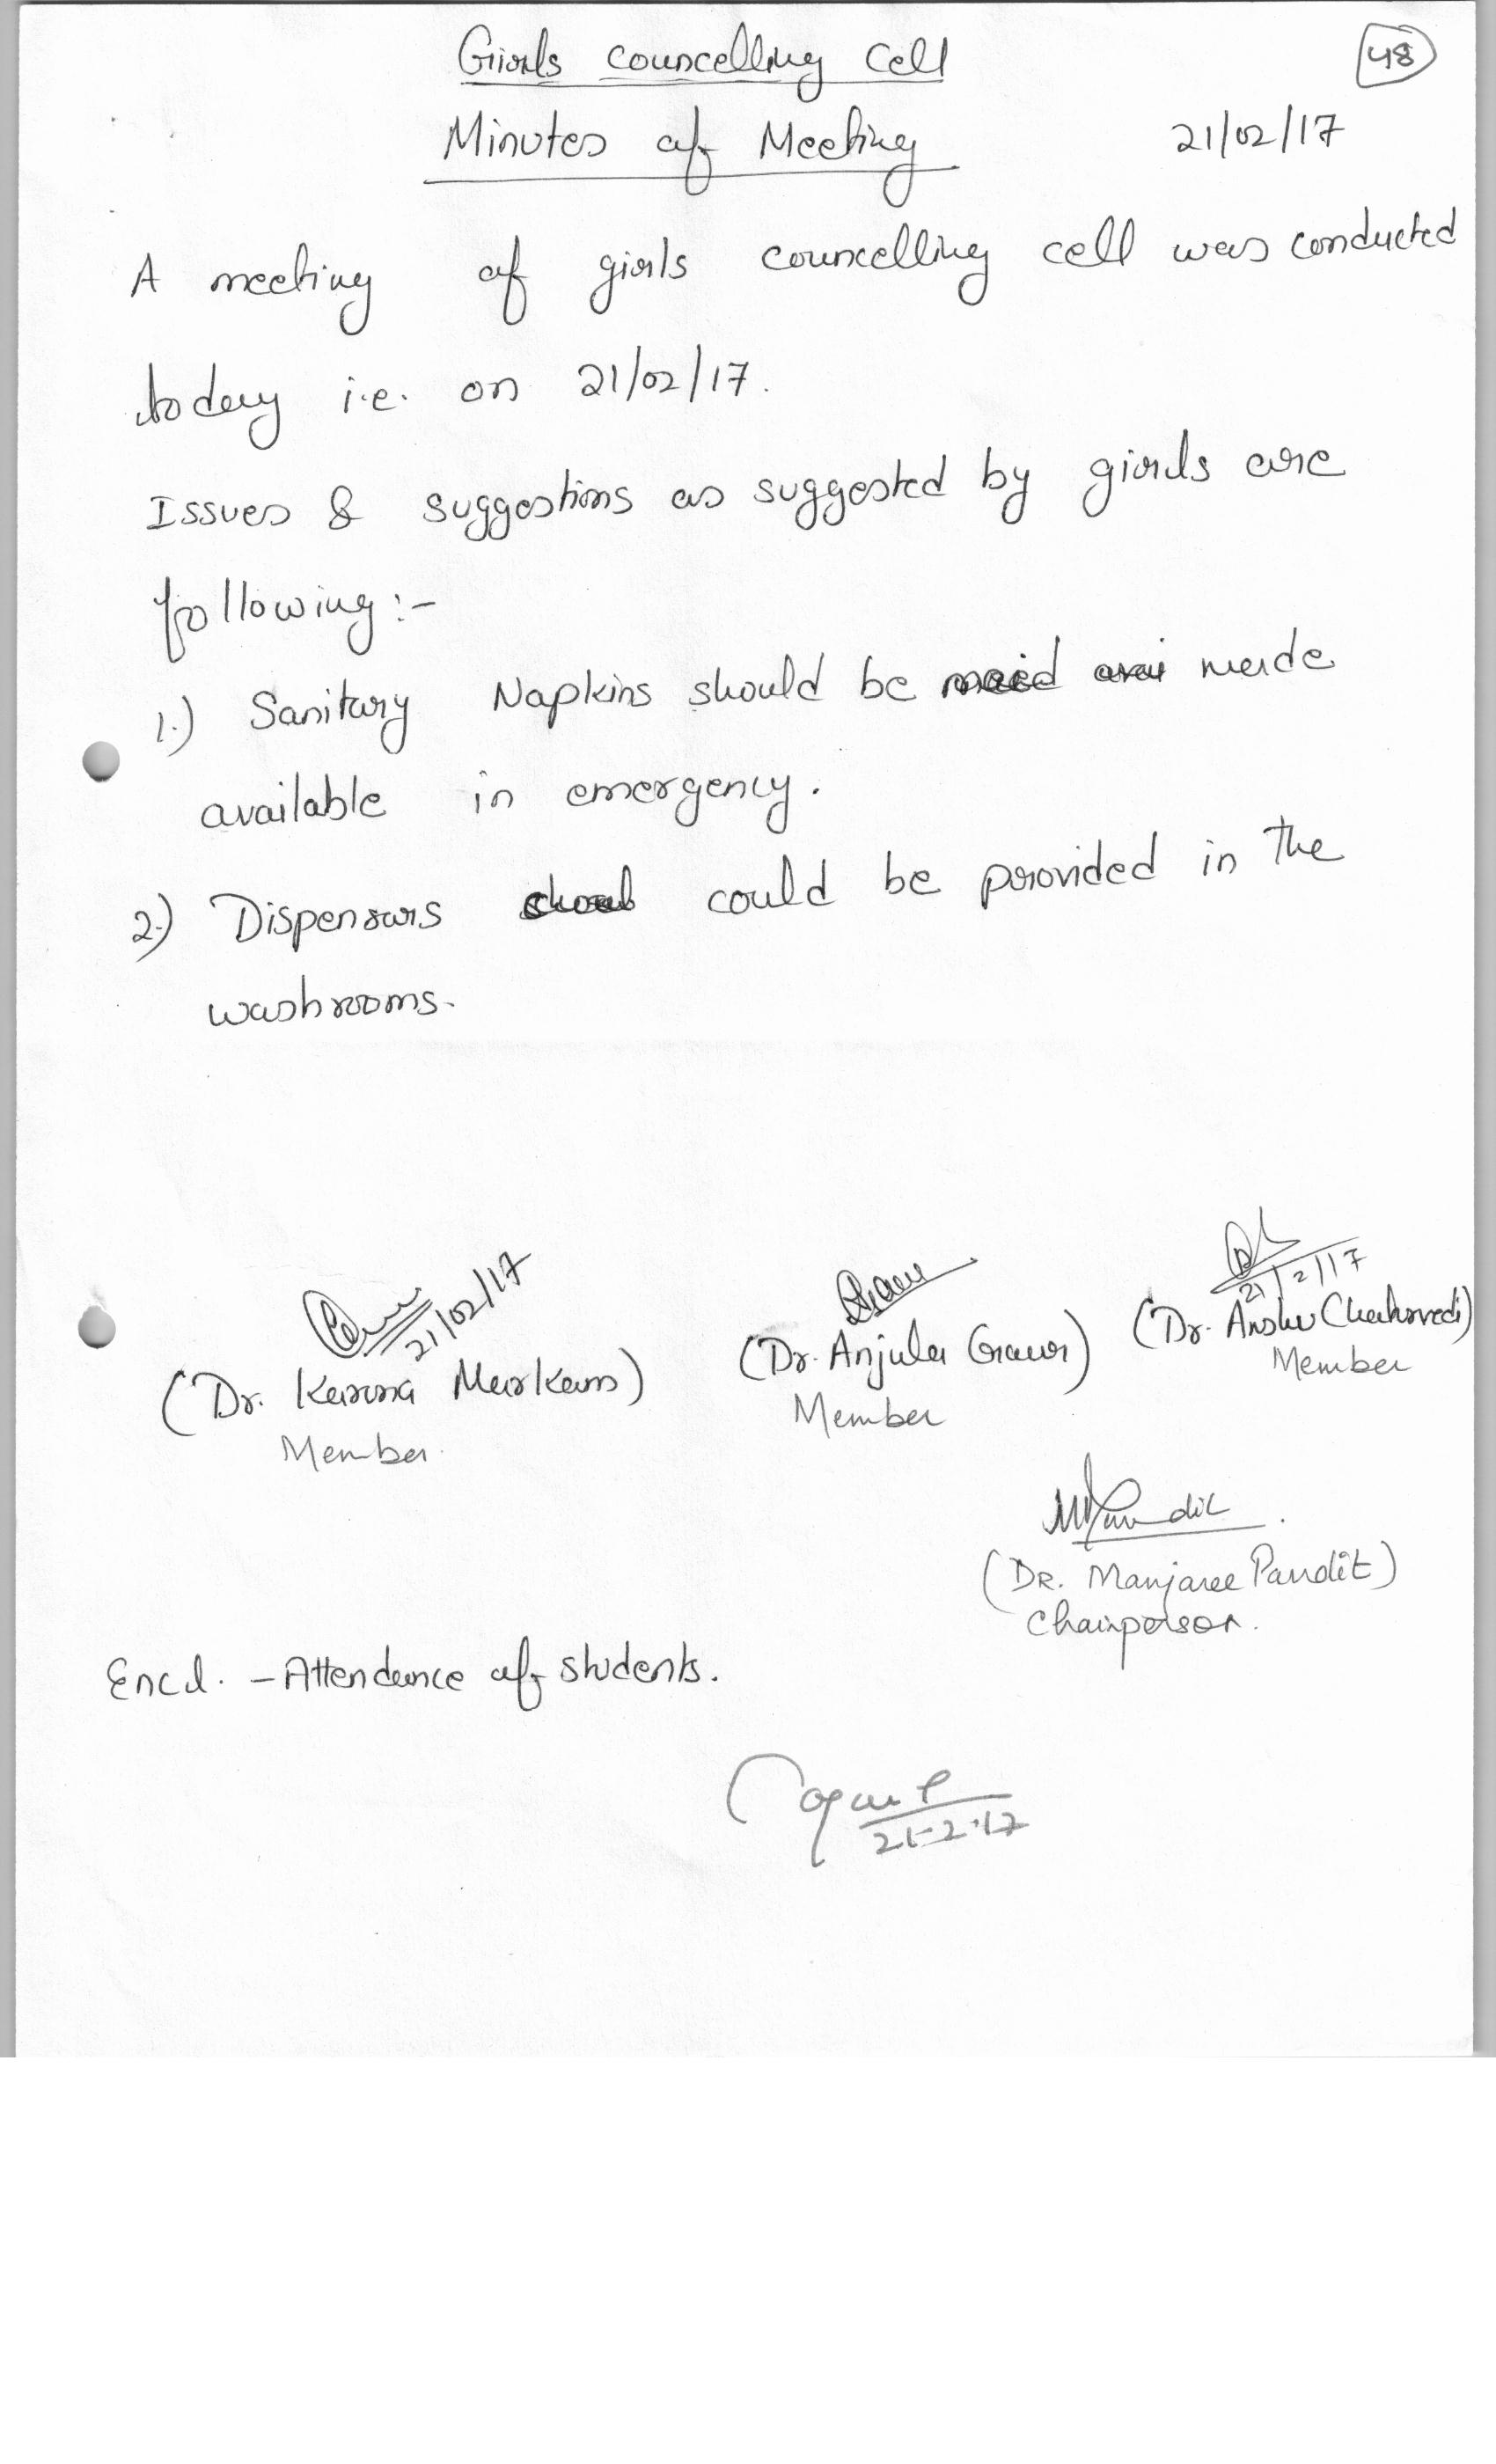 Girls councelling cell
48
Minutes of Meeting
21/02/17
A meeting of girls councelling cell was conducted
today i.e. on 21/02/17.
Issues & suggestions as suggested by girls are
following:-
1.) Sanitary Napkins should be made
available in emergency.
2.) Dispensars could be provided in the
washrooms.
21/02/17
21/2/17
(Dr. Karuna Markam)
(Dr. Anjula Gaur)
(Dr. Anshu Chaturvedi)
Member
Member
Member
(DR. Manjaree Pandit)
Chairperson.
Encl. - Attendance of students.
21-2-17